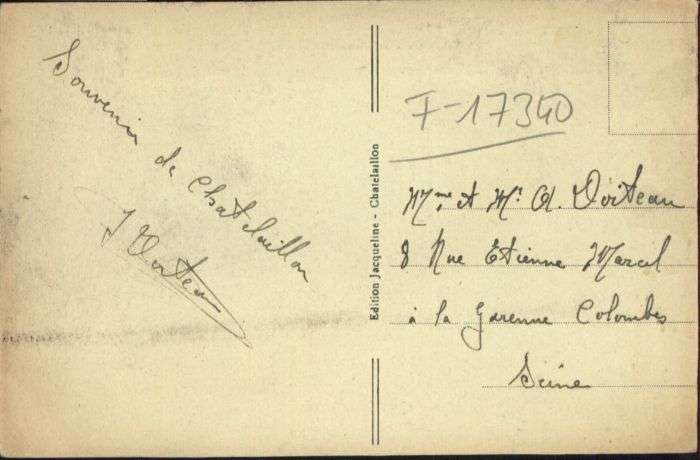 Souvenir de Chatelaillon
J Doiteau
Edition Jacqueline - Chatelaillon
F-17340
Mme et Mr A. Doiteau
8 Rue Etienne Marcel
à la Garenne Colombes
Seine